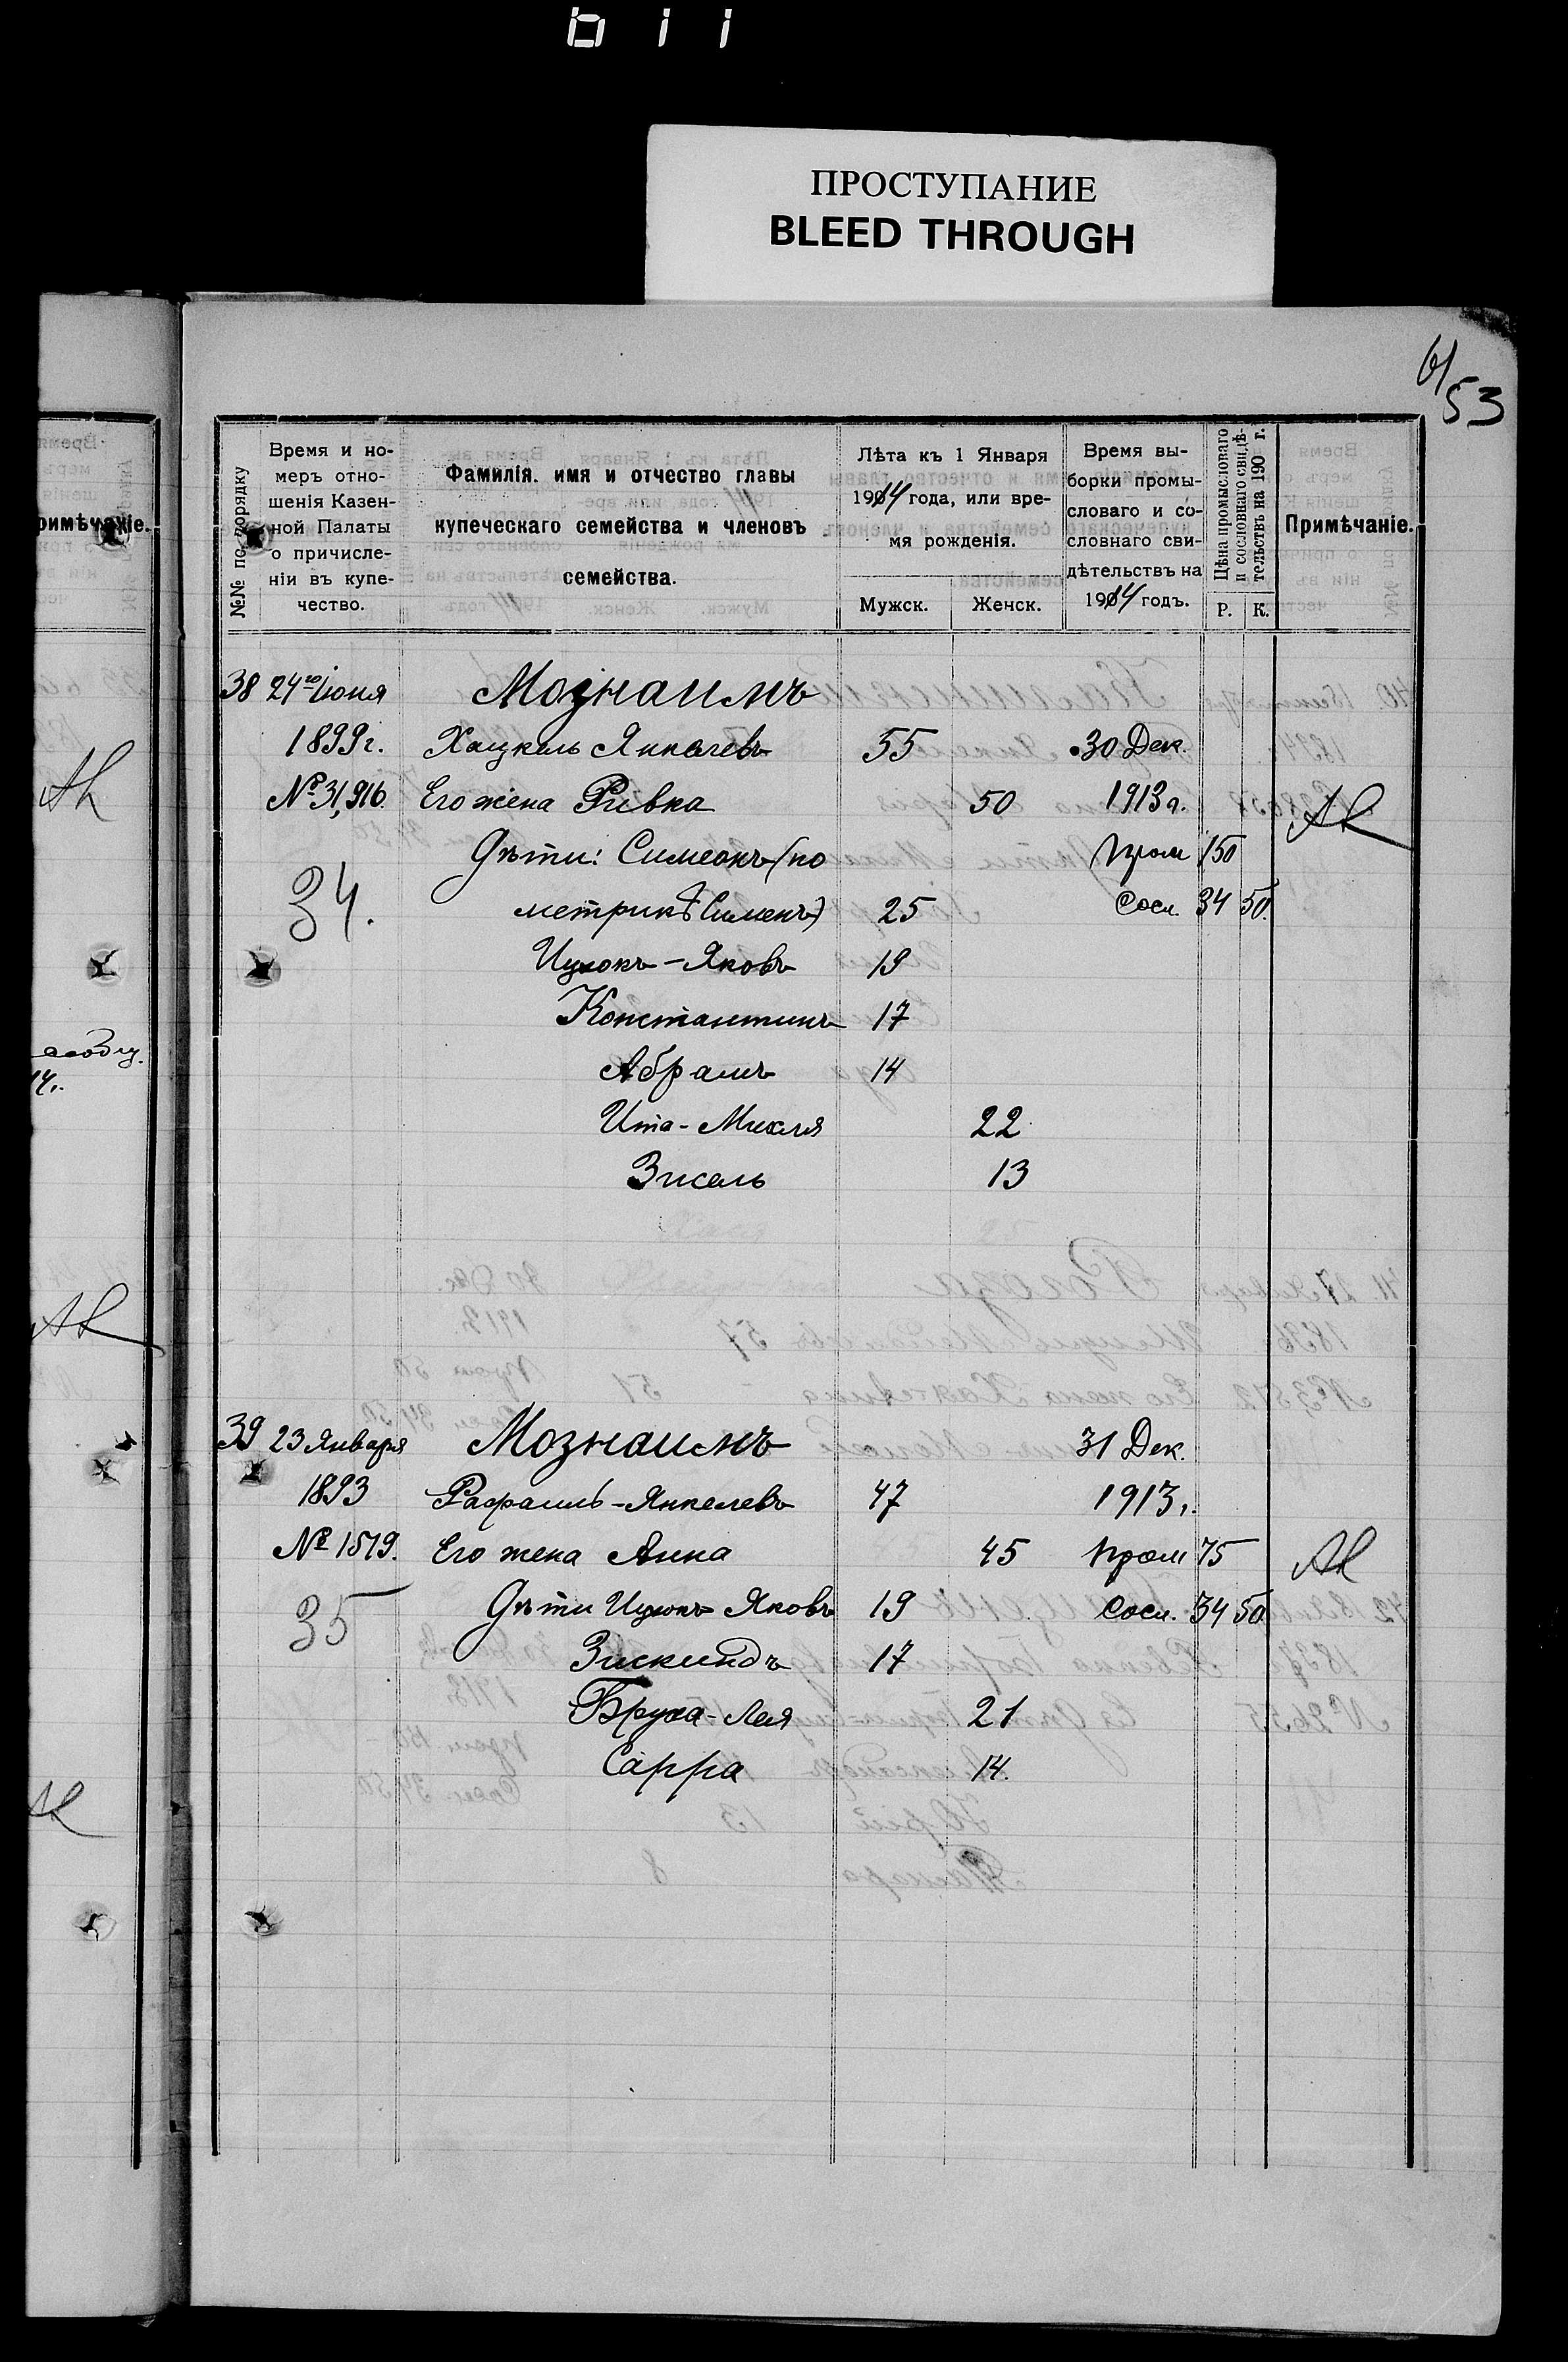 ПРОСТУПАНИЕ
BLEED THROUGH
53
№№ по порядку
Время и но-
меръ отно-
шенія Казен-
ной Палаты
о причисле-
ніи въ купе-
чество.
Фамилія. имя и отчество главы
купеческаго семейства и членовъ
семейства.
Лѣта къ 1 Января
1914 года, или вре-
мя рожденія.
Мужск. Женск.
Время вы-
борки промы-
словаго и со-
словнаго сви-
дѣтельствъ на
1914 годъ.
Цѣна промысловаго
и сословнаго свидѣ-
тельствъ на 190 г.
Р. К.
Примѣчаніе.
38 24го Іюня Мознаимъ
1899 г. Хацкель Янкелевъ 55 30 Дек.
№ 31,916. Его жена Ривка 50 1913 г.
Дѣти: Симеонъ (по Пром 150
34. метрикѣ Сименъ) 25 Сосл. 34 50.
Ицхокъ-Яковъ 19
Константинъ 17
Абрамъ 14
Ита-Михля 22
Зисель 13
39 23 Января Мознаимъ 31 Дек.
1893 Рафаилъ-Янкелевъ 47 1913 г.
№ 1519. Его жена Анна 45 Пром 75
35 Дѣти Ицхокъ Яковъ 19 Сосл. 34 50.
Зискиндъ 17
Бруха-Лея 21
Сарра 14.